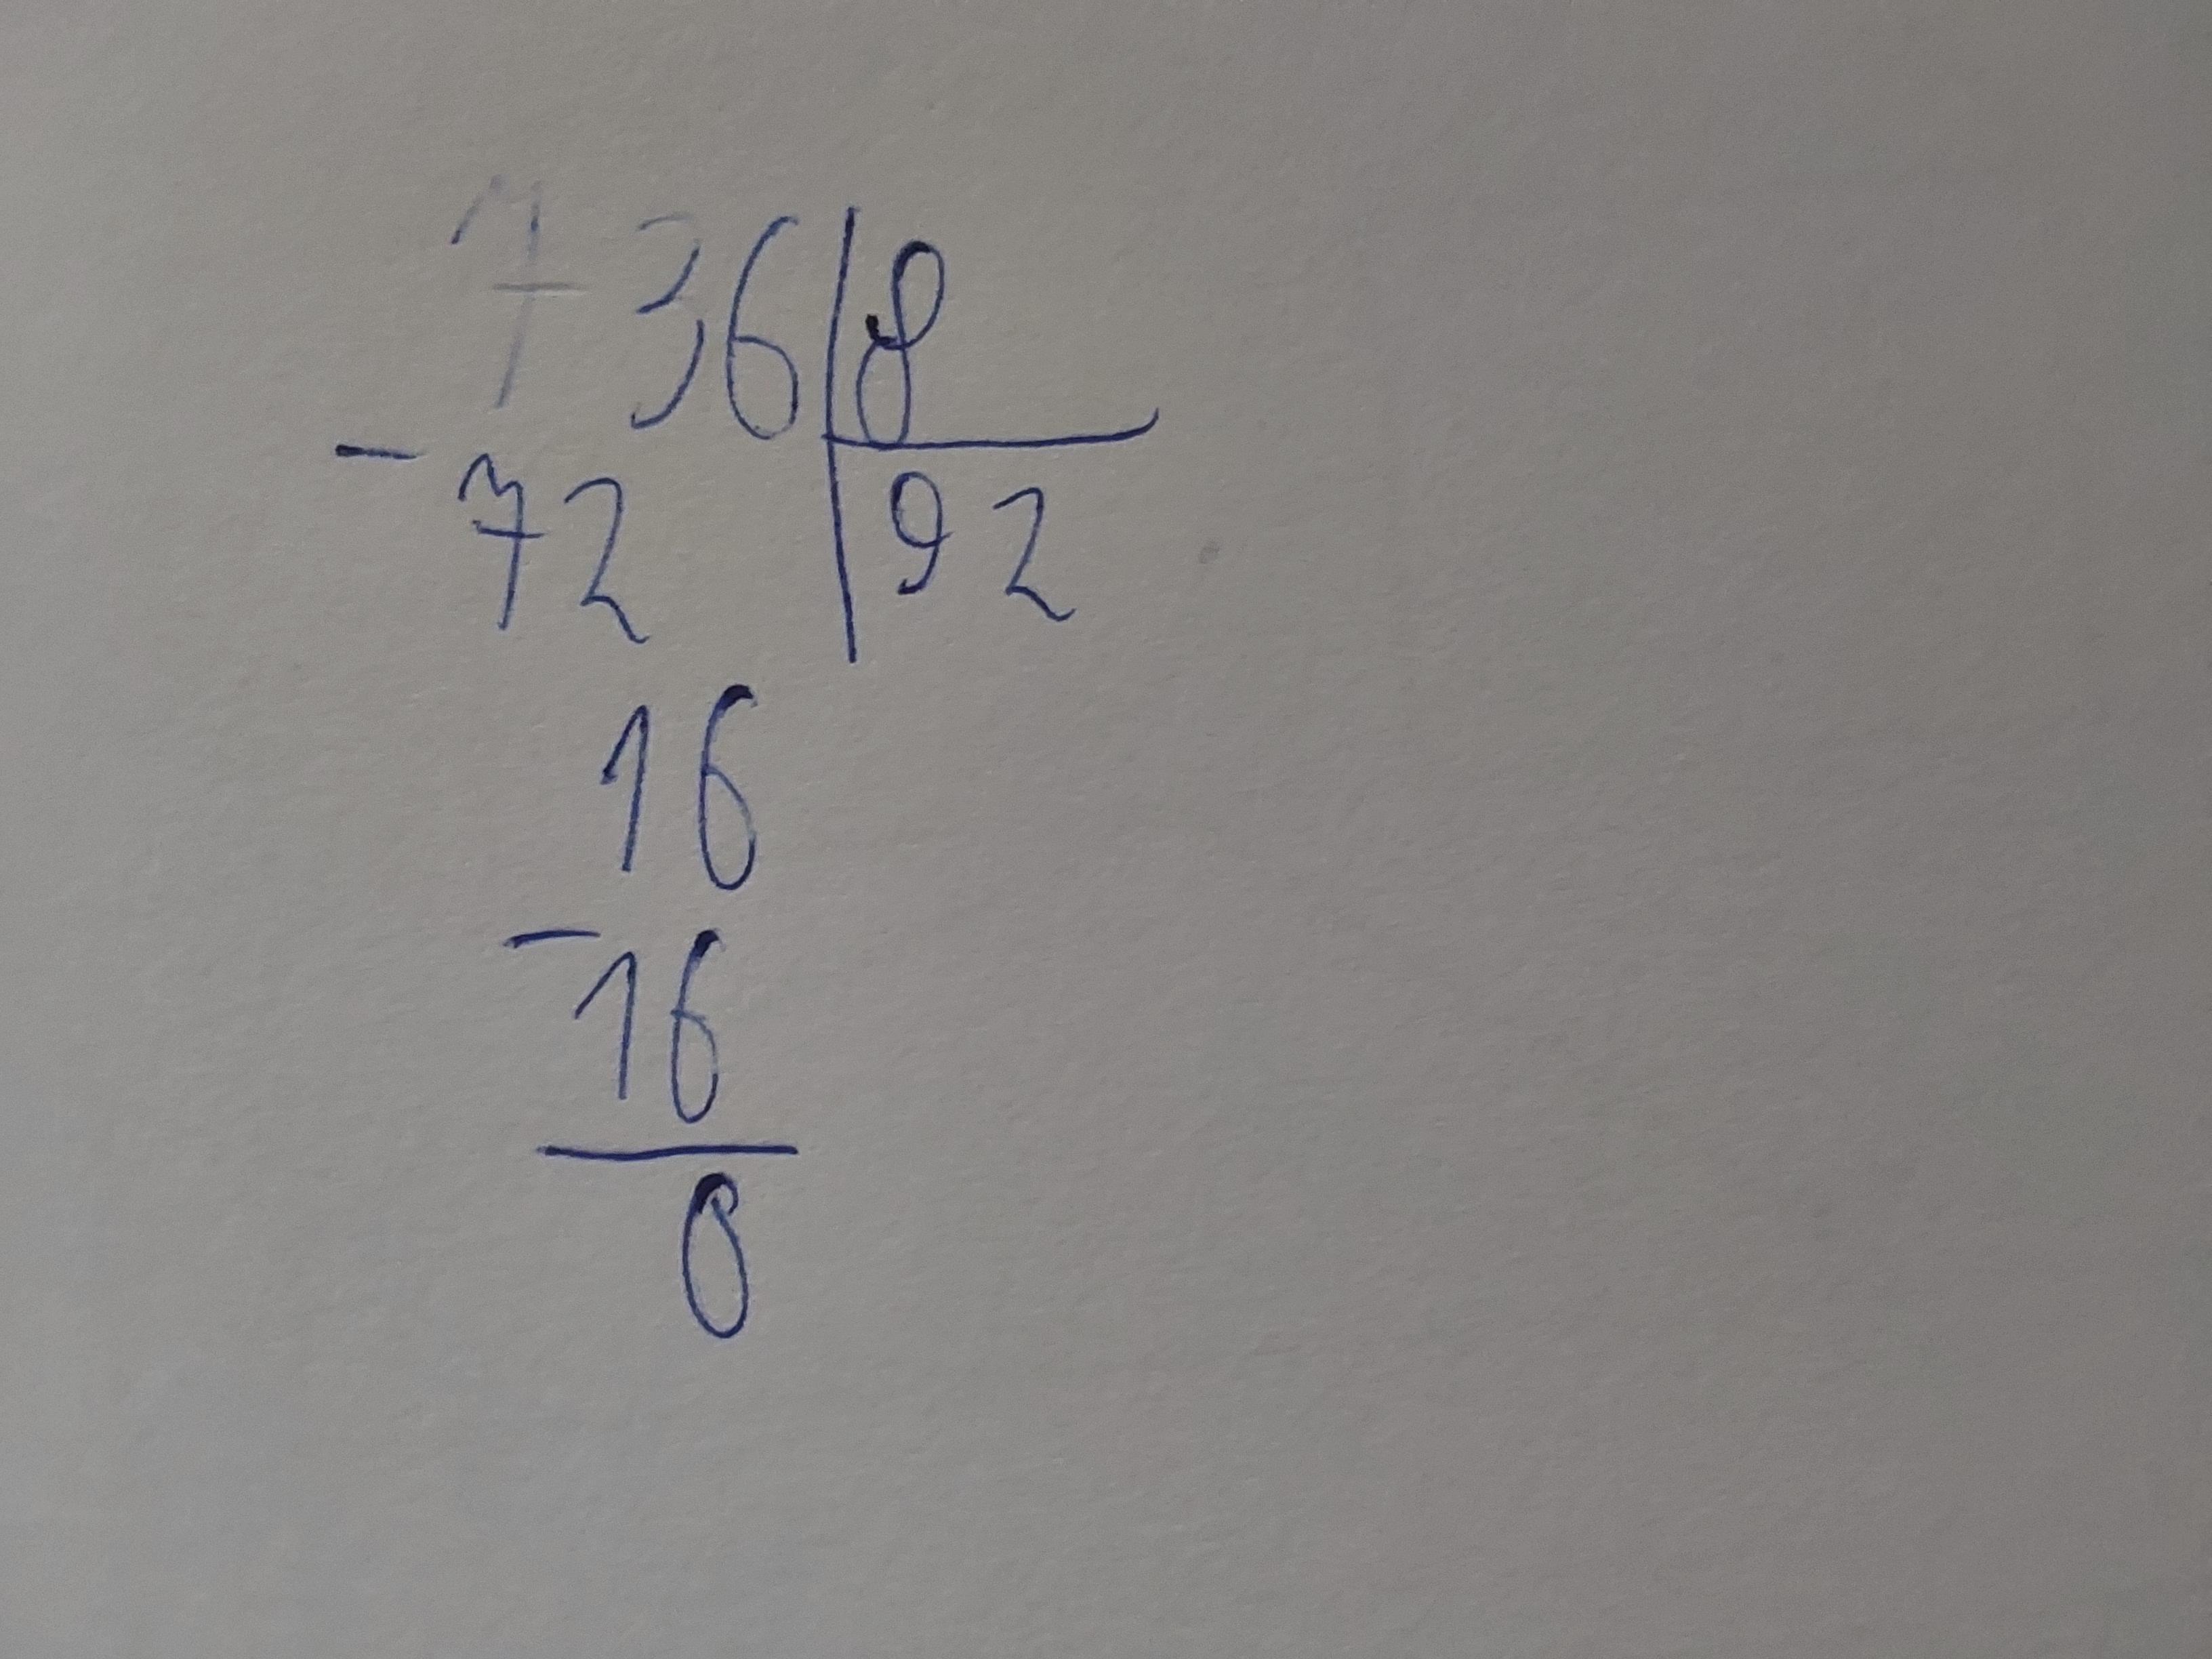 736 | 8
- 72 | 92
16
- 16
0